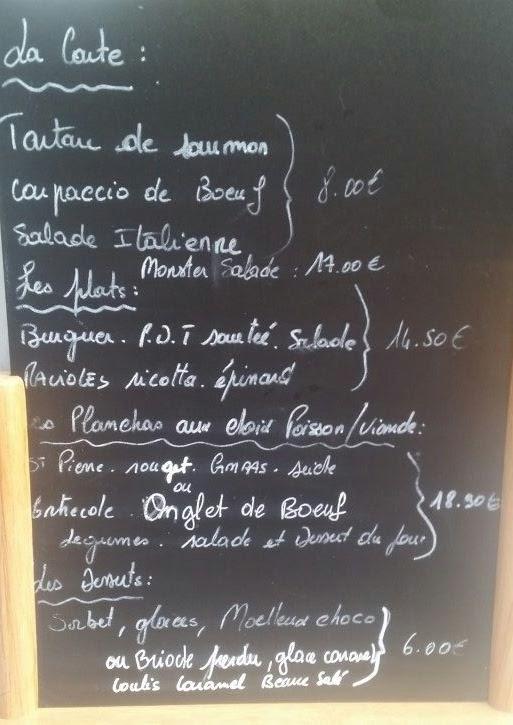 La Carte :
Tartare de saumon
carpaccio de Boeuf 8.00€
Salade Italienne
Monster Salade : 17.00€
Les plats :
Burguer. P.D.T sautée. Salade 14.50€
RAVIOLES ricotta. épinard
Les Planchas aux choix Poisson/Viande :
ST Pierre. rouget. GAMBAS. seiche
ou
Entrecote. Onglet de Boeuf 18.90€
Legumes. salade et Dessert du Jour
Les Desserts :
Sorbet, glaces, Moelleux choco
ou Brioche perdu, glace caramel 6.00€
Coulis Caramel Beurre Salé